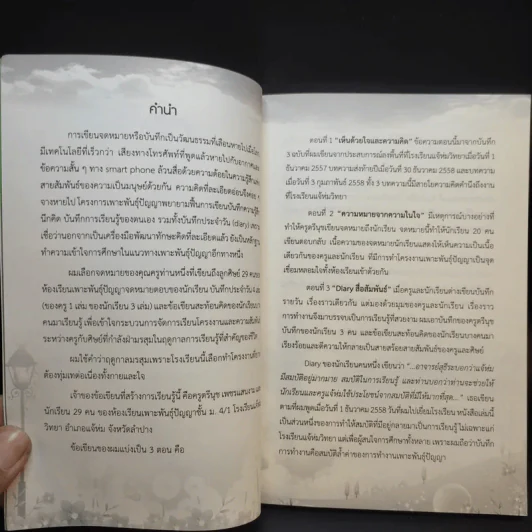 คำนำ
การเขียนจดหมายหรือบันทึกเป็นวัฒนธรรมที่เลือนหายไปเมื่อ
มีเทคโนโลยีที่เร็วกว่า เสียงทางโทรศัพท์ที่พูดแล้วหายไปกับอากาศและ
ข้อความสั้น ๆ ทาง smart phone ล้วนสื่อด้วยความด้อยในความรู้สึกและ
สายสัมพันธ์ของความเป็นมนุษย์ด้วยกัน ความคิดที่ละเอียดอ่อนจึงค่อย ๆ
จางหายไป โครงการเพาะพันธุ์ปัญญาพยายามฟื้นการเขียนบันทึกความรู้สึก
นึกคิด บันทึกการเรียนรู้ของตนเอง รวมทั้งบันทึกประจำวัน (diary) เพราะ
เชื่อว่านอกจากเป็นเครื่องมือพัฒนาทักษะคิดที่ละเอียดแล้ว ยังเป็นหลักฐาน
ทำความเข้าใจการศึกษาในแนวทางเพาะพันธุ์ปัญญาอีกทางหนึ่ง
ผมเลือกจดหมายของคุณครูท่านหนึ่งที่เขียนถึงลูกศิษย์ 29 คน
ของห้องเรียนเพาะพันธุ์ปัญญาจดหมายตอบของนักเรียน บันทึกประจำวัน 4 เล่ม
(ของครู 1 เล่ม ของนักเรียน 3 เล่ม) และข้อเขียนสะท้อนคิดของนักเรียน
คนมาเรียนรู้ เพื่อเข้าใจกระบวนการจัดการเรียนรู้โครงงานและความสัมพันธ์
ระหว่างครูกับศิษย์ที่กำลังฝ่ามรสุมในฤดูกาลการเรียนรู้ที่สำคัญของชีวิต
ผมใช้คำว่าฤดูกาลมรสุมเพราะโรงเรียนนี้เลือกทำโครงงานที่
ต้องทุ่มเทต่อเนื่องทั้งกายและใจ
เจ้าของข้อเขียนที่สร้างการเรียนรู้นี้ คือครูดรีนุช เพชรแสนงาม และ
นักเรียน 29 คน ของห้องเรียนเพาะพันธุ์ปัญญาชั้น ม. 4/1 โรงเรียนแจ้ห่ม
วิทยา อำเภอแจ้ห่ม จังหวัดลำปาง
ข้อเขียนของผมแบ่งเป็น 3 ตอน คือ
ตอนที่ 1 "เห็นด้วยใจและความคิด" ข้อความตอนนี้มาจากบันทึก
3 ฉบับที่ผมเขียนจากประสบการณ์ลงพื้นที่ที่โรงเรียนแจ้ห่มวิทยาเมื่อวันที่ 1
ธันวาคม 2557 บทความส่งท้ายปีเมื่อวันที่ 30 ธันวาคม 2558 และบทความ
เมื่อวันที่ 3 กุมภาพันธ์ 2558 ทั้ง 3 บทความนี้มีสายใยความคิดคำนึงถึงงาน
ที่โรงเรียนแจ้ห่มวิทยา
ตอนที่ 2 "ความหมายจากความในใจ" มีเหตุการณ์บางอย่างที่
ทำให้ครูดรีนุชเขียนจดหมายถึงนักเรียน จดหมายนี้ทำให้นักเรียน 20 คน
เขียนตอบกลับ เนื้อความของจดหมายนักเรียนแสดงให้เห็นความเป็นเนื้อ
เดียวกันของครูและนักเรียน ที่มีการทำโครงงานเพาะพันธุ์ปัญญาเป็นจุด
เชื่อมหลอมใจทั้งห้องเรียนเข้าด้วยกัน
ตอนที่ 3 "Diary สื่อสัมพันธ์" เมื่อครูและนักเรียนต่างเขียนบันทึก
รายวัน เรื่องราวเดียวกัน แต่มองด้วยมุมของครูและนักเรียน เรื่องราว
การทำงานจึงมาบรรจบเป็นการเรียนรู้ที่สวยงาม ผมเอาบันทึกของครูดรีนุช
บันทึกของนักเรียน 3 คน และข้อเขียนสะท้อนคิดของนักเรียนบางคนมา
เรียงร้อยและตีความให้กลายเป็นสายสร้อยสายสัมพันธ์ของครูและศิษย์
Diary ของนักเรียนคนหนึ่ง เขียนว่า "...อาจารย์สุธีระบอกว่าแจ้ห่ม
มีสมบัติอยู่มากมาย สมบัติในการเรียนรู้ และท่านบอกว่าท่านจะช่วยให้
นักเรียนและครูแจ้ห่มใช้ประโยชน์จากสมบัติที่มีให้มากที่สุด..." เธอเขียน
ตามที่ผมพูดเมื่อวันที่ 1 ธันวาคม 2558 วันที่ผมไปเยี่ยมโรงเรียน หนังสือเล่มนี้
เป็นส่วนหนึ่งของการทำให้สมบัติที่มีอยู่กลายมาเป็นการเรียนรู้ ไม่เฉพาะแก่
โรงเรียนแจ้ห่มวิทยา แต่เพื่อผู้สนใจการศึกษาทั้งหลาย เพราะผมถือว่าบันทึก
การทำงานคือสมบัติล้ำค่าของการทำงานเพาะพันธุ์ปัญญา